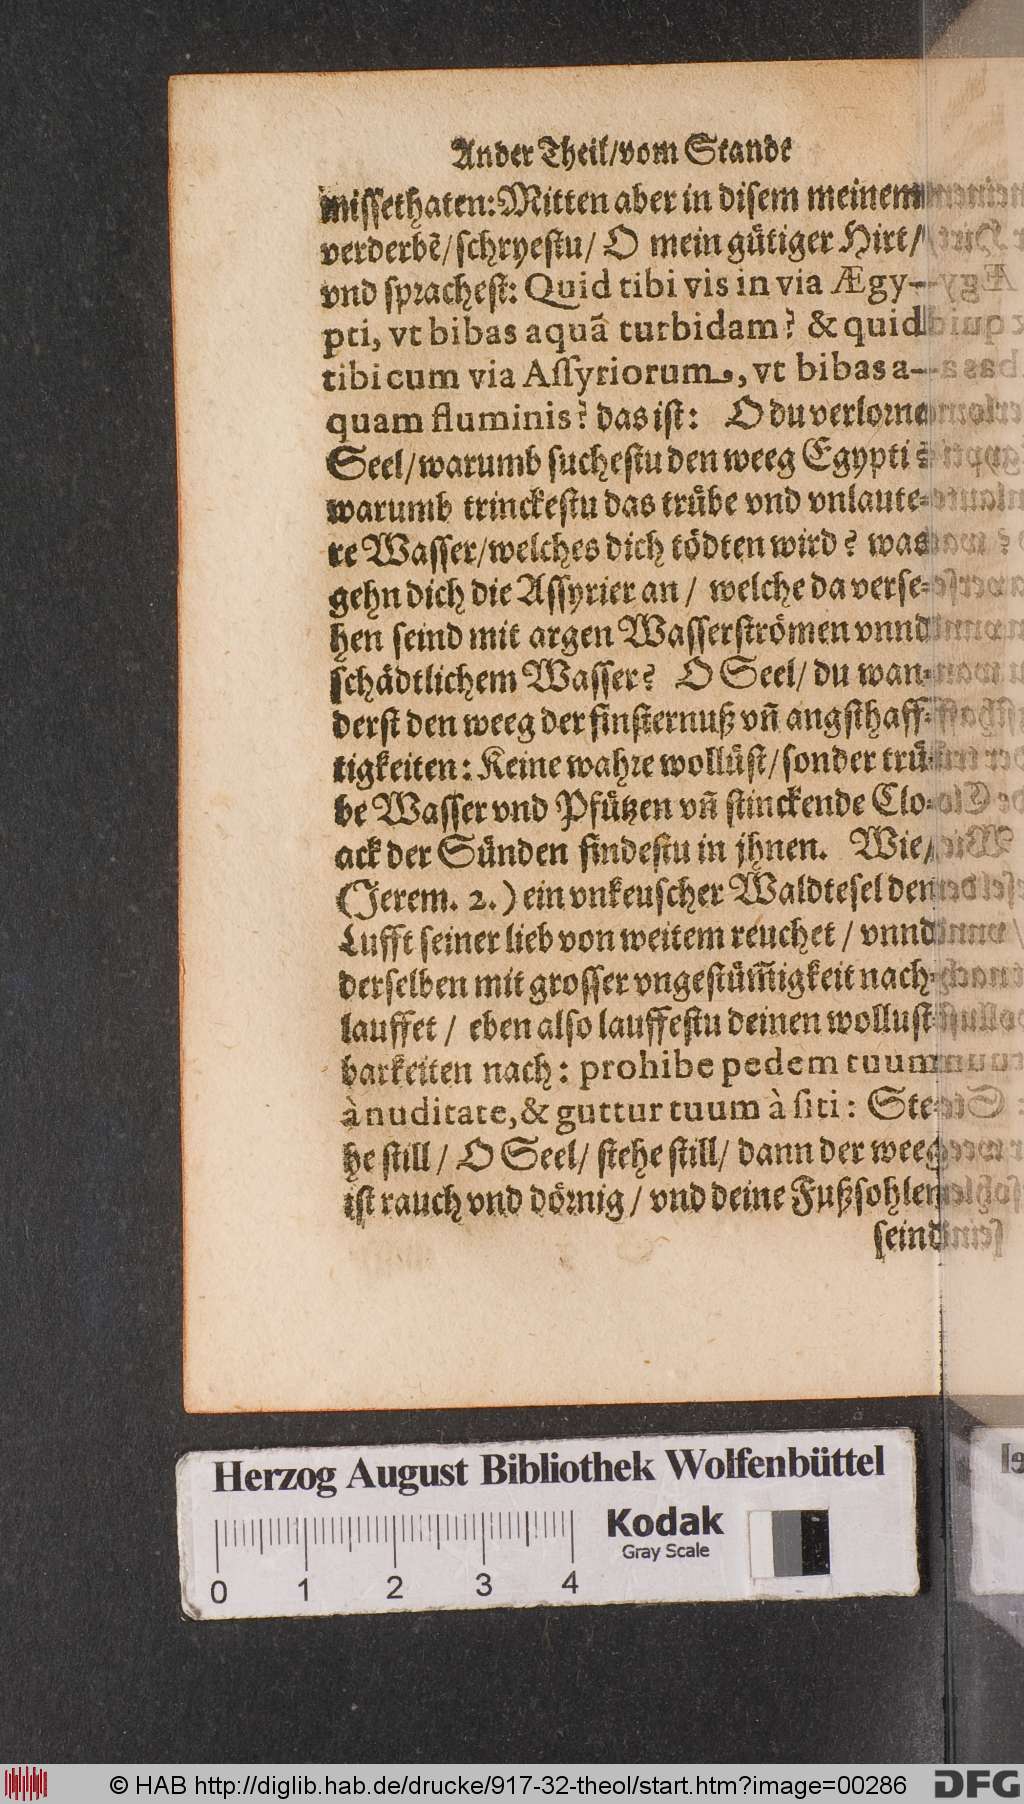 Ander Theil/vom Stande
missethaten: Mitten aber in disem meinem
verderbẽ/schryestu/ O mein gütiger Hirt/
vnd sprachest: Quid tibi vis in via Ægy-
pti, vt bibas aquã turbidam? & quid
tibi cum via Assyriorum, vt bibas a-
quam fluminis? das ist: O du verlorne
Seel/warumb suchestu den weeg Egypti?
warumb trinckestu das trübe vnd vnlaute-
re Wasser/welches dich tödten wird? was
gehn dich die Assyrier an/ welche da verse-
hen seind mit argen Wasserströmen vnnd
schädtlichem Wasser? O Seel/ du wan-
derst den weeg der finsternuß vñ angsthaff-
tigkeiten: Keine wahre wollüst/sonder trü-
be Wasser vnd Pfützen vñ stinckende Clo-
ack der Sünden findestu in jhnen. Wie/
(Jerem. 2.) ein vnkeuscher Waldtesel den
Lufft seiner lieb von weitem reuchet/ vnnd
derselben mit grosser vngestüm̃igkeit nach-
lauffet/ eben also lauffestu deinen wollust-
barkeiten nach: prohibe pedem tuum
à nuditate, & guttur tuum à siti: Ste-
he still/ O Seel/ stehe still/ dann der weeg
ist rauch vnd dörnig/ vnd deine Fußsohlen
seind
Herzog August Bibliothek Wolfenbüttel
Kodak
Gray Scale
0 1 2 3 4
© HAB http://diglib.hab.de/drucke/917-32-theol/start.htm?image=00286
DFG